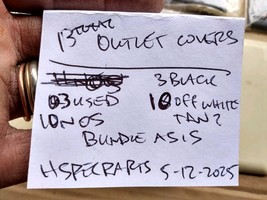 13 OUTLET COVERS
3 BLACK
03 USED 10 OFF WHITE
10 NOS TAN?
BUNDLE AS IS
HSPECRARTS 5-12-2025